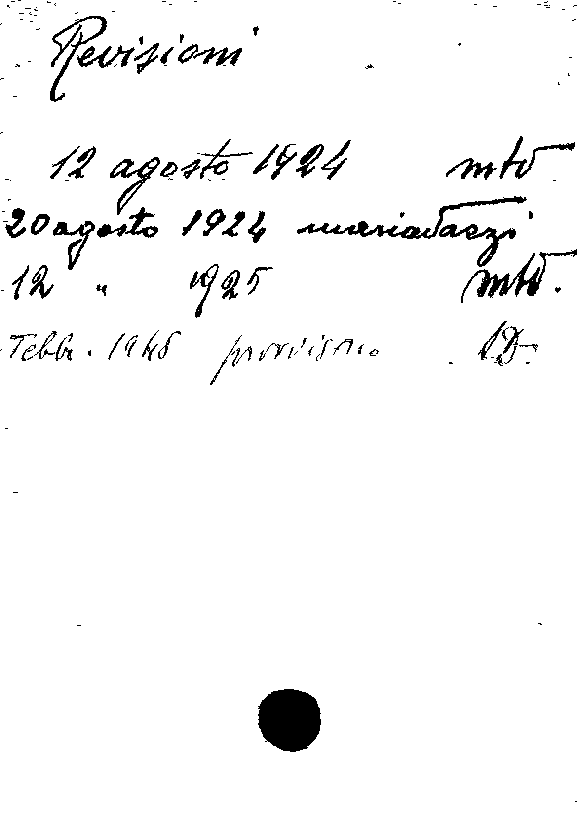 Revisioni
12 agosto 1924 mtd
20 agosto 1924
12 " 1925 mtd.
Febbr. 1946 provvisorio